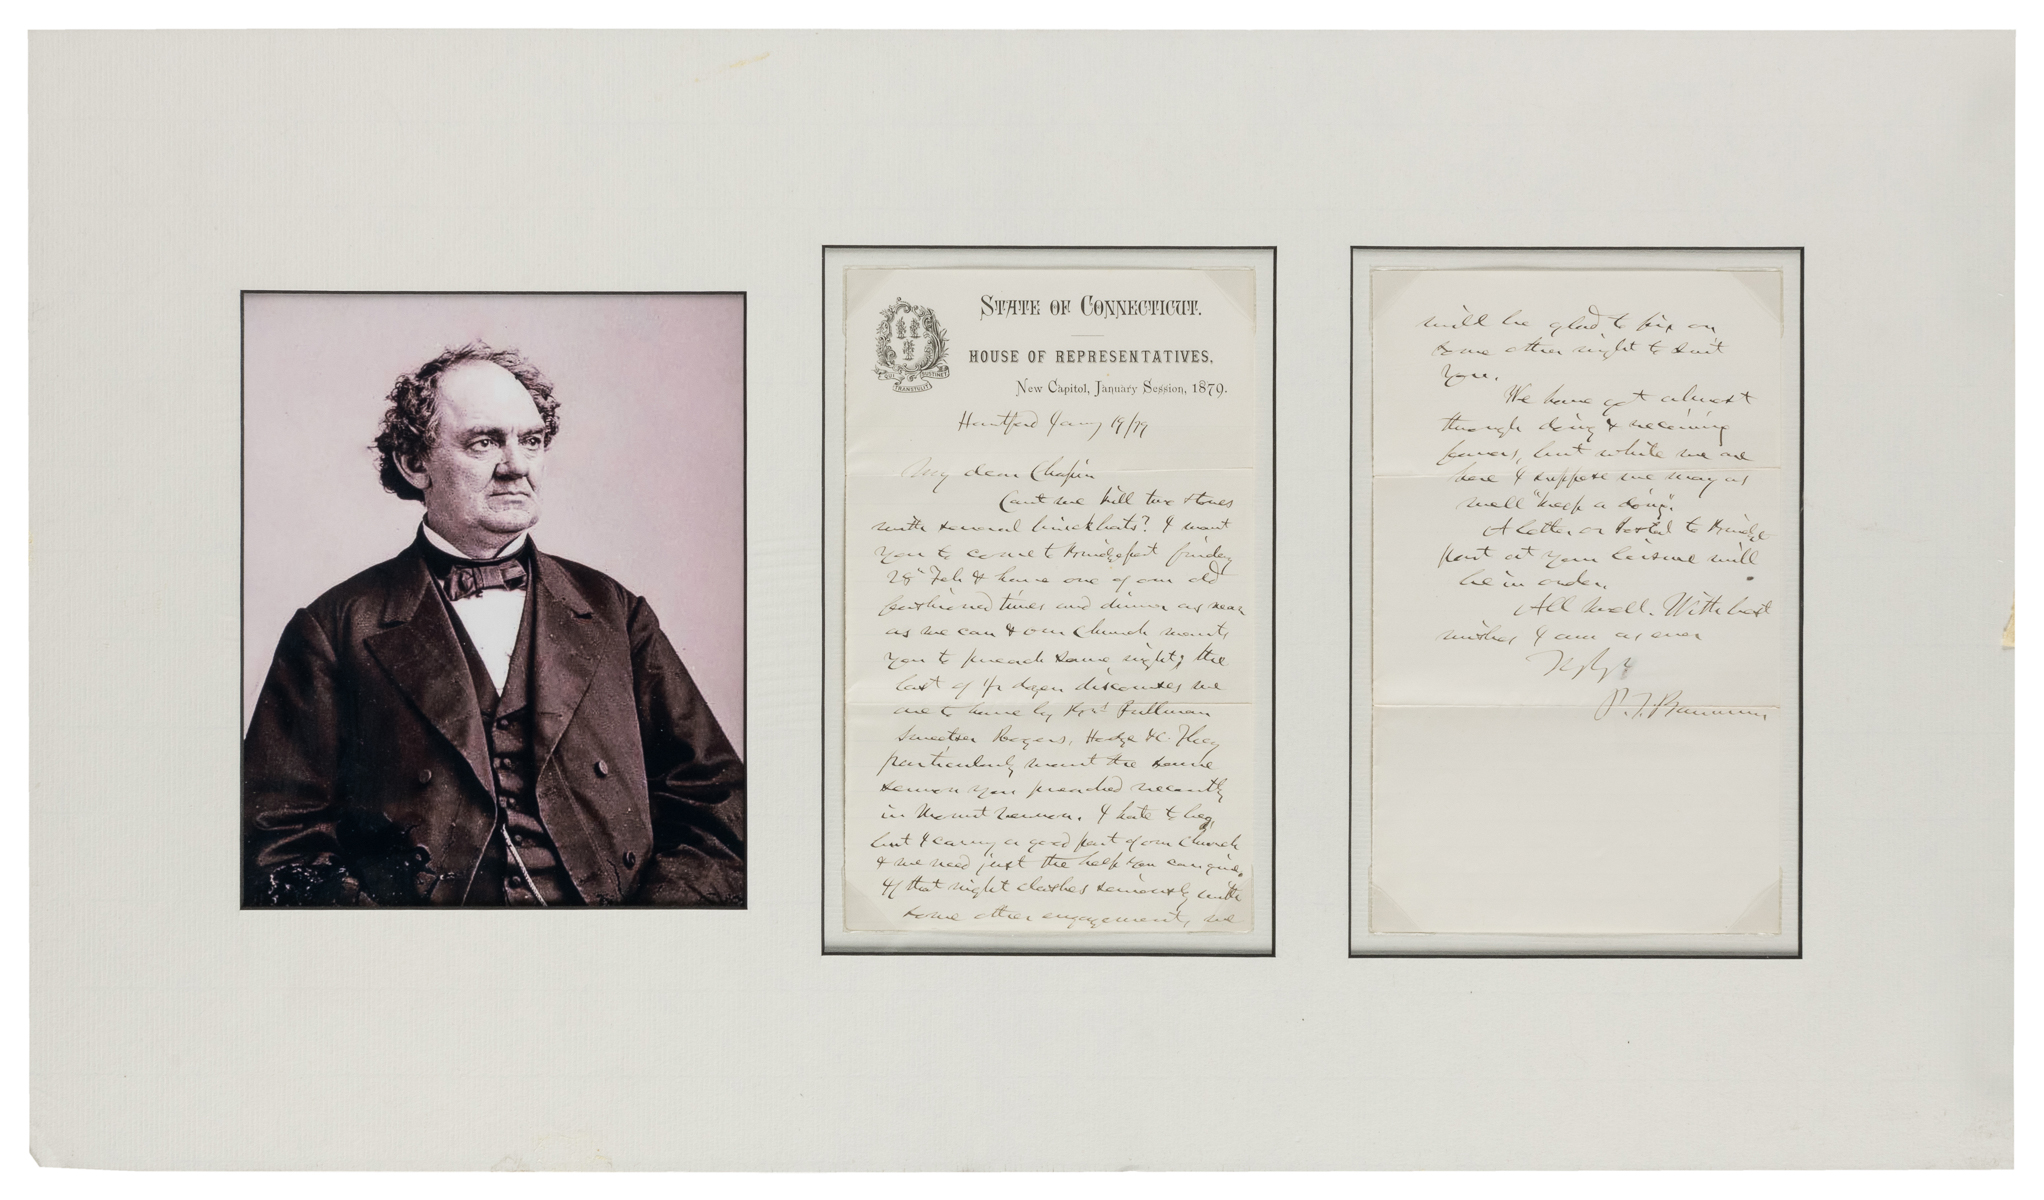 STATE OF CONNECTICUT.
HOUSE OF REPRESENTATIVES,
New Capitol, January Session, 1879.
QUI TRANSTULIT SUSTINET
Hartford Jany 19/79
My dear Chapin
Cant we kill two stones
with several brickbats? I want
you to come to Bridgeport friday
28 Feb & have one of our old
fashioned times and dinner as near
as we can & our Church wants
you to preach same night, the
last of ½ dozen discourses we
are to have by Revs Pullman
Sweetser Rogers, Hodge &c. They
particularly want the same
sermon you preached recently
in Mount Vernon. I hate to beg,
but I carry a good part of our Church
& we need just the help you can give.
If that night clashes seriously with
some other engagement, we
will be glad to fix on
some other night to suit
you.
We have got almost
through doing & receiving
favors, but while we are
here I suppose we may as
well "keep a doing".
A letter or Postal to Bridge
port at your leisure will
be in order.
All well. With best
wishes I am as ever
P. T. Barnum